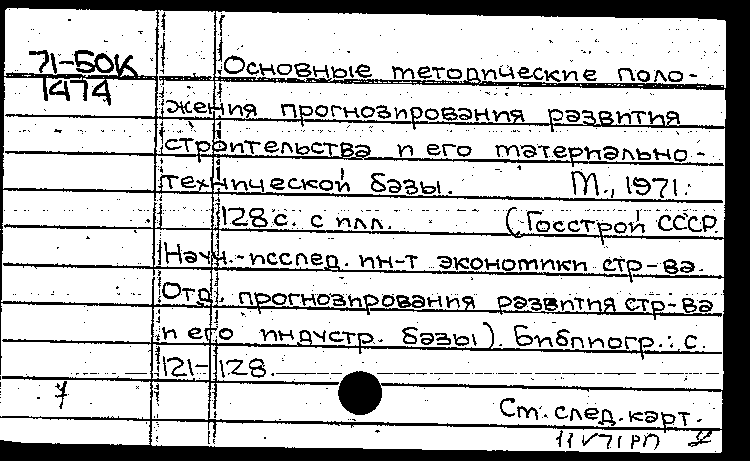 71-БОК
1474
Основные методические поло-
жения прогнозирования развития
строительства и его материально-
технической базы. М., 1971.
128 с. с илл. (Госстрой СССР.
Науч.-исслед. ин-т экономики стр-ва.
Отд. прогнозирования развития стр-ва
и его индустр. базы). Библиогр.: с.
121-128.
См. след. карт.